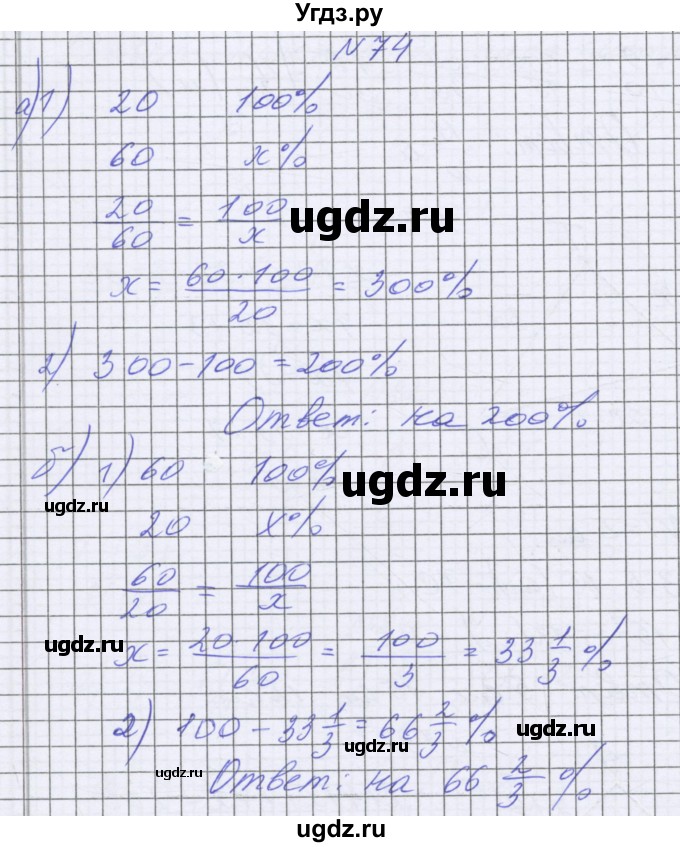 Угдз.ру
N 74
а) 1) 20 100%
60 x%
20/60 = 100/x
ugdz.ru
x = 60·100/20 = 300%
2) 300-100=200%
Ответ: на 200%
б) 1) 60 100%
ugdz.ru
20 x%
ugdz.ru
60/20 = 100/x
x = 20·100/60 = 100/3 = 33 1/3 %
ugdz.ru
2) 100-33 1/3 = 66 2/3 %
ugdz.ru
ugdz.ru
Ответ: на 66 2/3 %
ugdz.ru
ugdz.ru